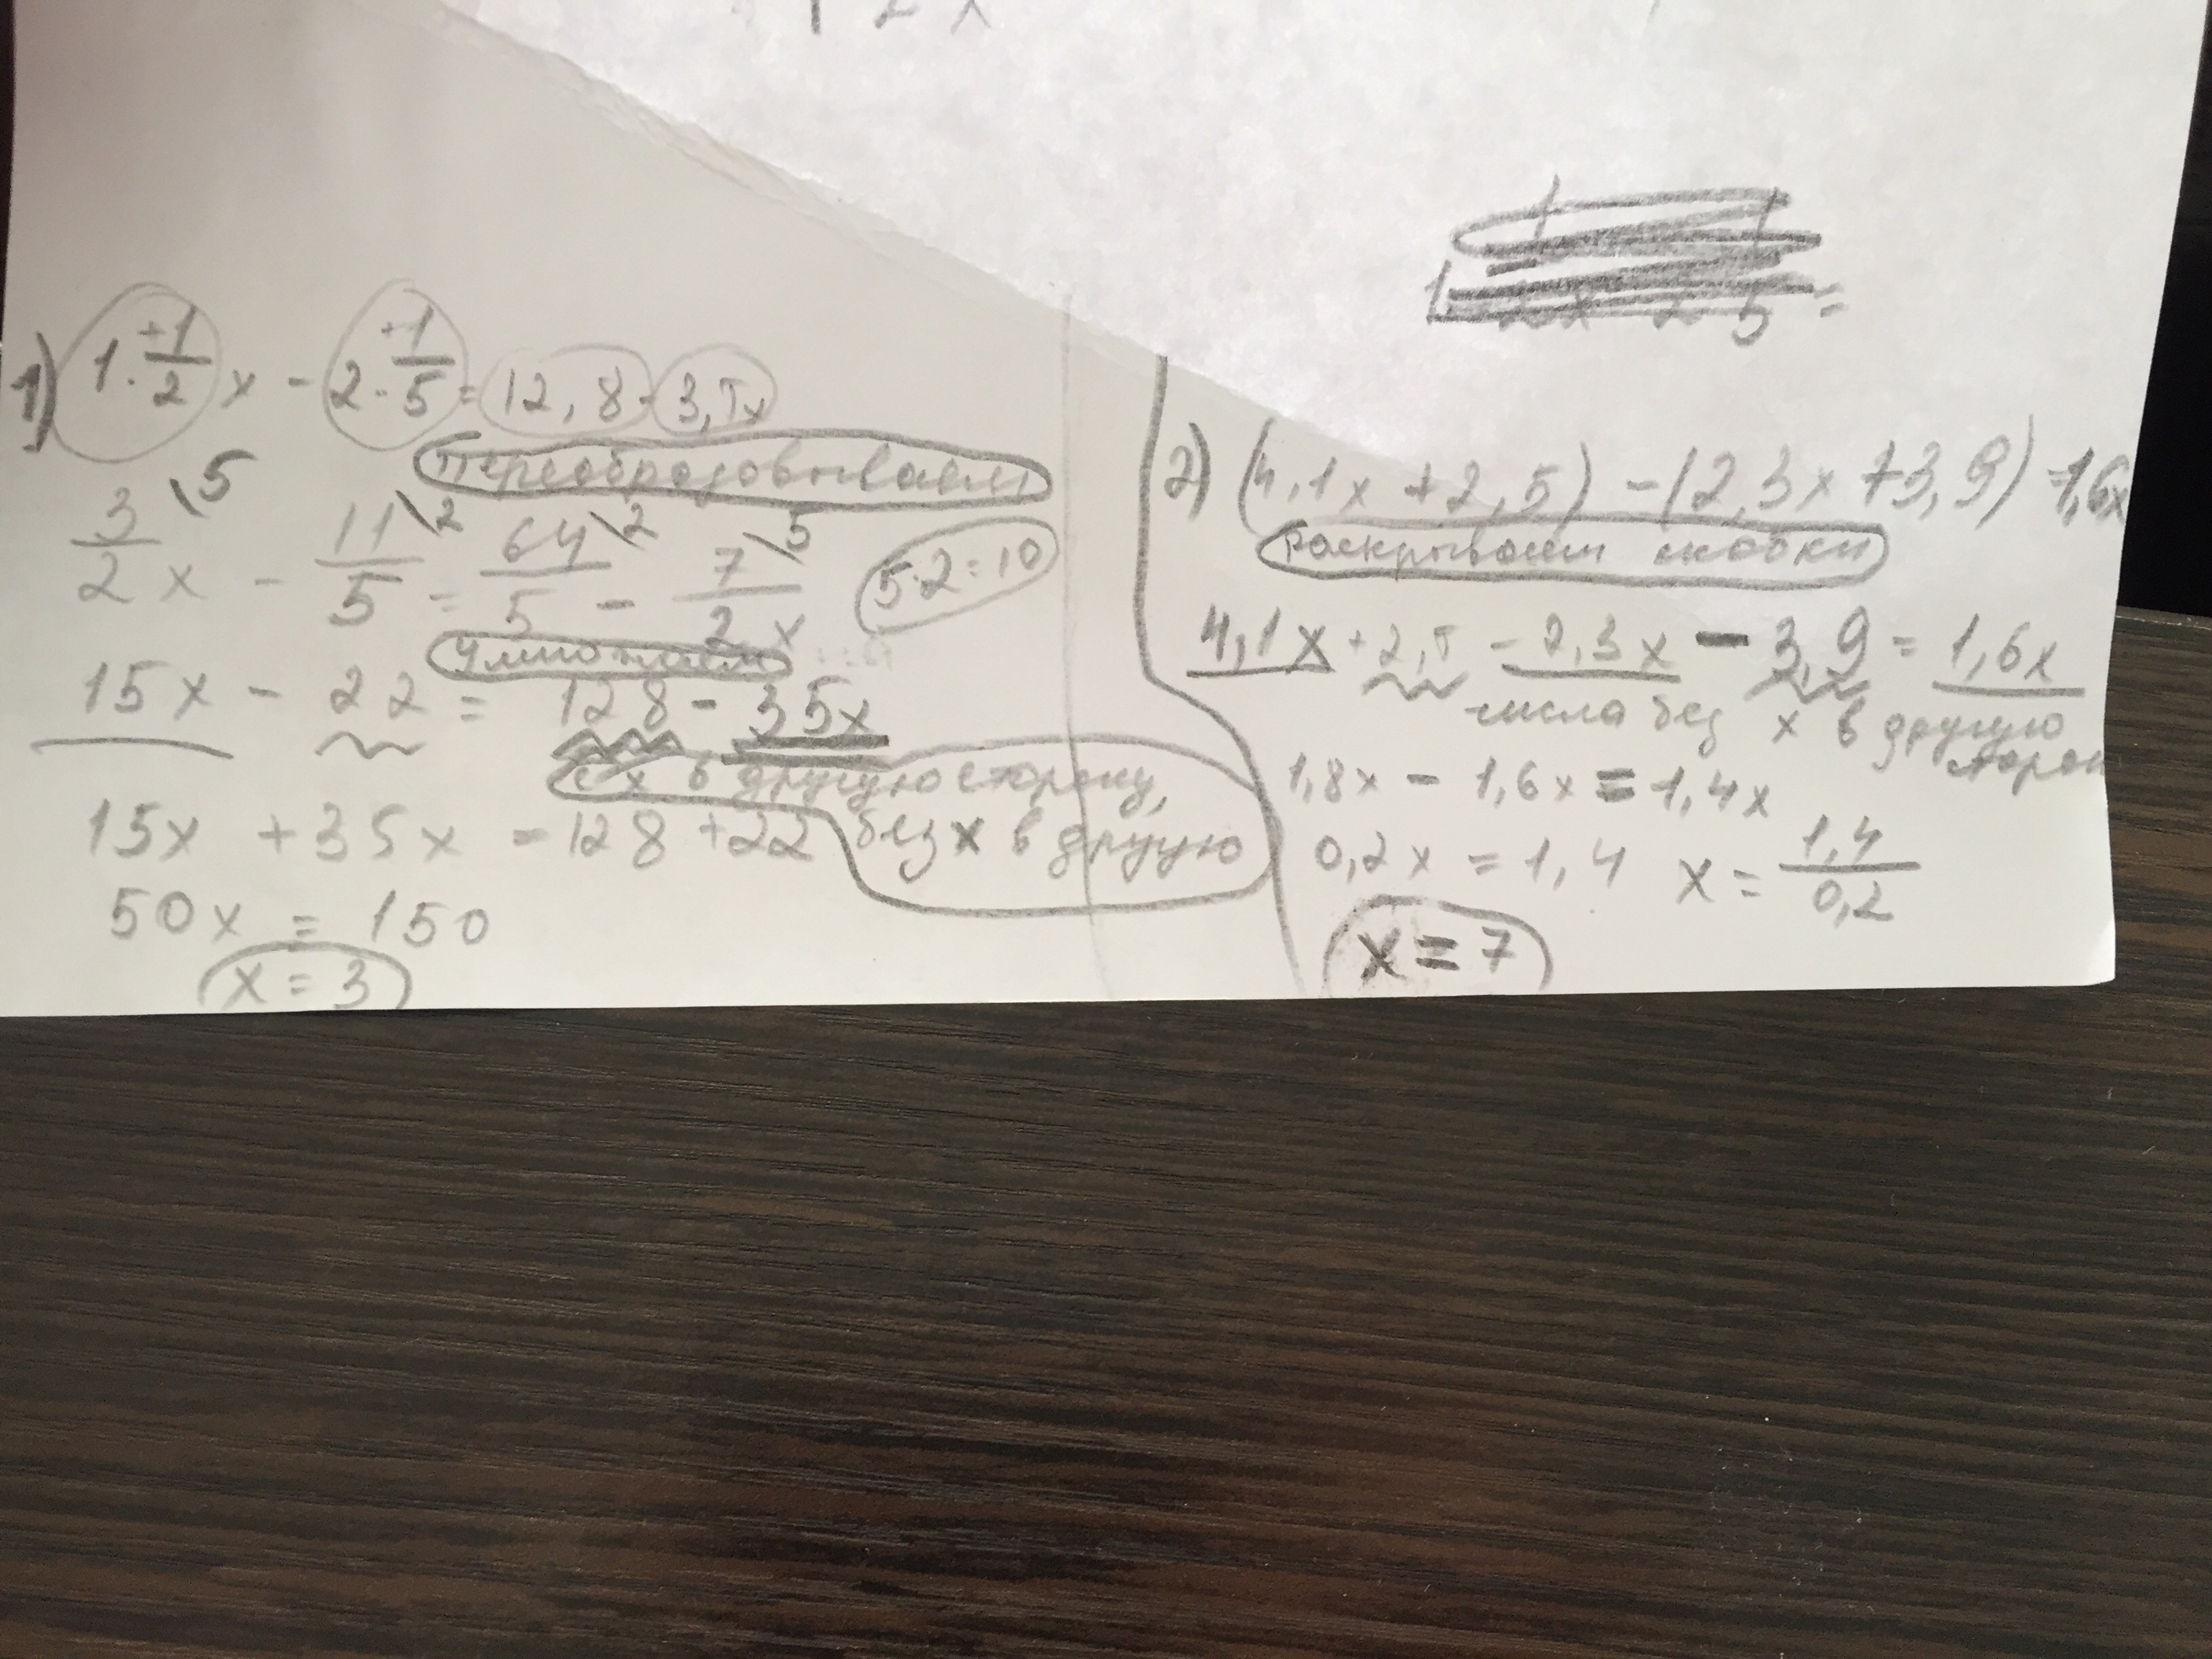 2x
1) 1·+1/2 x - 2·+1/5 = 12,8 - 3,5x
Преобразовываем
3/2 x \5 - 11/5 \2 = 64/5 \2 - 7/2 x \5
5·2=10
умножаем
15x - 22 = 128 - 35x
с x в другую сторону,
без x в другую
15x + 35x = 128 + 22
50x = 150
x = 3
2) (4,1x + 2,5) - (2,3x + 3,9) = 1,6x
Раскрываем скобки
4,1x + 2,5 - 2,3x - 3,9 = 1,6x
числа без x в другую
сторон
1,8x - 1,6x = 1,4x
0,2x = 1,4 x = 1,4/0,2
x = 7